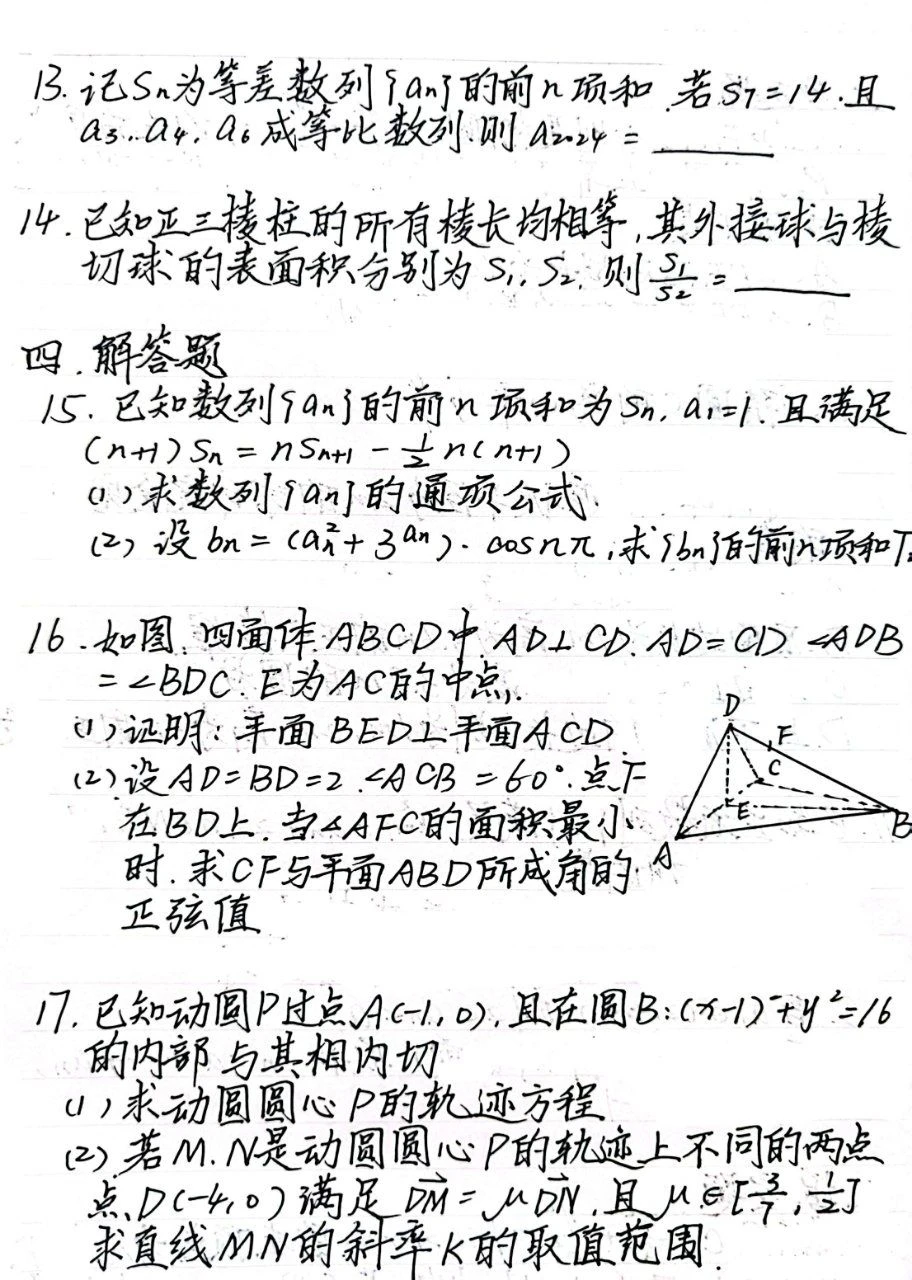 13. 记Sn为等差数列{an}的前n项和.若S7=14.且
a3..a4.a6成等比数列.则 a2024 = ____
14.已知正三棱柱的所有棱长均相等,其外接球与棱
切球的表面积分别为 S1, S2, 则 S1/S2 = ____
四.解答题
15. 已知数列{an}的前n项和为Sn, a1=1.且满足
(n+1)Sn = nSn+1 - 1/2 n(n+1)
(1)求数列{an}的通项公式.
(2) 设 bn = (an²+3^an)·cosnπ,求{bn}的前n项和T
16.如图.四面体ABCD中 AD⊥CD. AD=CD ∠ADB
=∠BDC. E为AC的中点,.
(1)证明:平面BED⊥平面ACD
(2)设AD=BD=2.∠ACB=60°.点F
在BD上.当△AFC的面积最小
时.求CF与平面ABD所成角的
正弦值
D
F
C
E
B
A
17.已知动圆P过点A(-1,0),且在圆B:(x-1)²+y²=16
的内部与其相内切
(1)求动圆圆心P的轨迹方程
(2)若M.N是动圆圆心P的轨迹上不同的两点
点D(-4,0)满足 DM→=μDN→,且μ∈[3/7,1/2]
求直线MN的斜率K的取值范围.